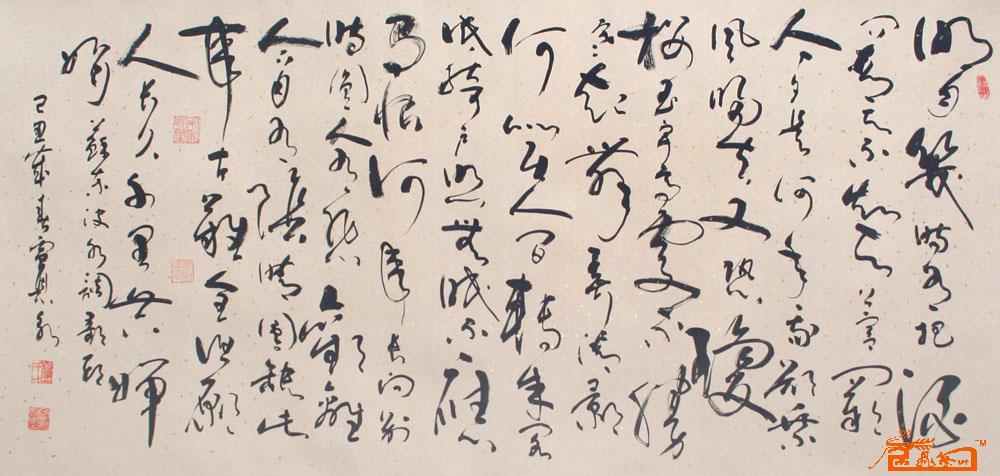 明月幾時有把酒
問青天不知天上宮闕
今夕是何年我欲乘
風歸去又恐瓊
樓玉宇高處不勝
寒起舞弄清影
何似在人間轉朱閣
低綺戶照無眠不應
有恨何事長向別
時圓人有悲歡離
合月有陰晴圓缺此
事古難全但願
人長久千里共嬋
娟 蘇東坡水調歌頭
己丑歲春